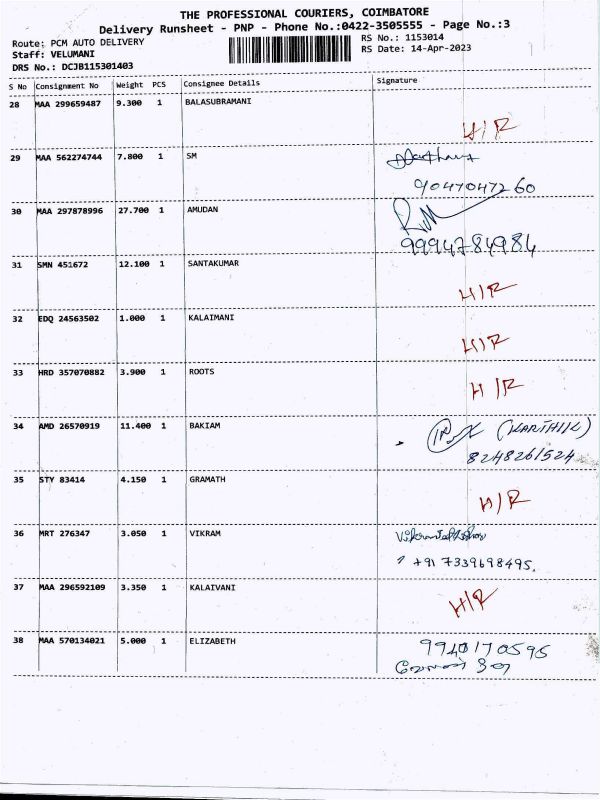 THE PROFESSIONAL COURIERS, COIMBATORE
Delivery Runsheet - PNP - Phone No.:0422-3505555 - Page No.:3
Route: PCM AUTO DELIVERY RS No.: 1153014
Staff: VELUMANI RS Date: 14-Apr-2023
DRS No.: DCJB115301403
S No Consignment No Weight PCS Consignee Details Signature
28 MAA 299659487 9.300 1 BALASUBRAMANI
H/R
29 MAA 562274744 7.800 1 SM
9047047260
30 MAA 297878996 27.700 1 AMUDAN
9994784984
31 SMN 451672 12.100 1 SANTAKUMAR
H/R
32 EDQ 24563502 1.000 1 KALAIMANI
H/R
33 HRD 357070882 3.900 1 ROOTS
H/R
34 AMD 26570919 11.400 1 BAKIAM
(KARTHIK)
8248261524
35 STY 83414 4.150 1 GRAMATH
H/R
36 MRT 276347 3.050 1 VIKRAM
+91 7339698495.
37 MAA 296592109 3.350 1 KALAIVANI
H/R
38 MAA 570134021 5.000 1 ELIZABETH
9940170595